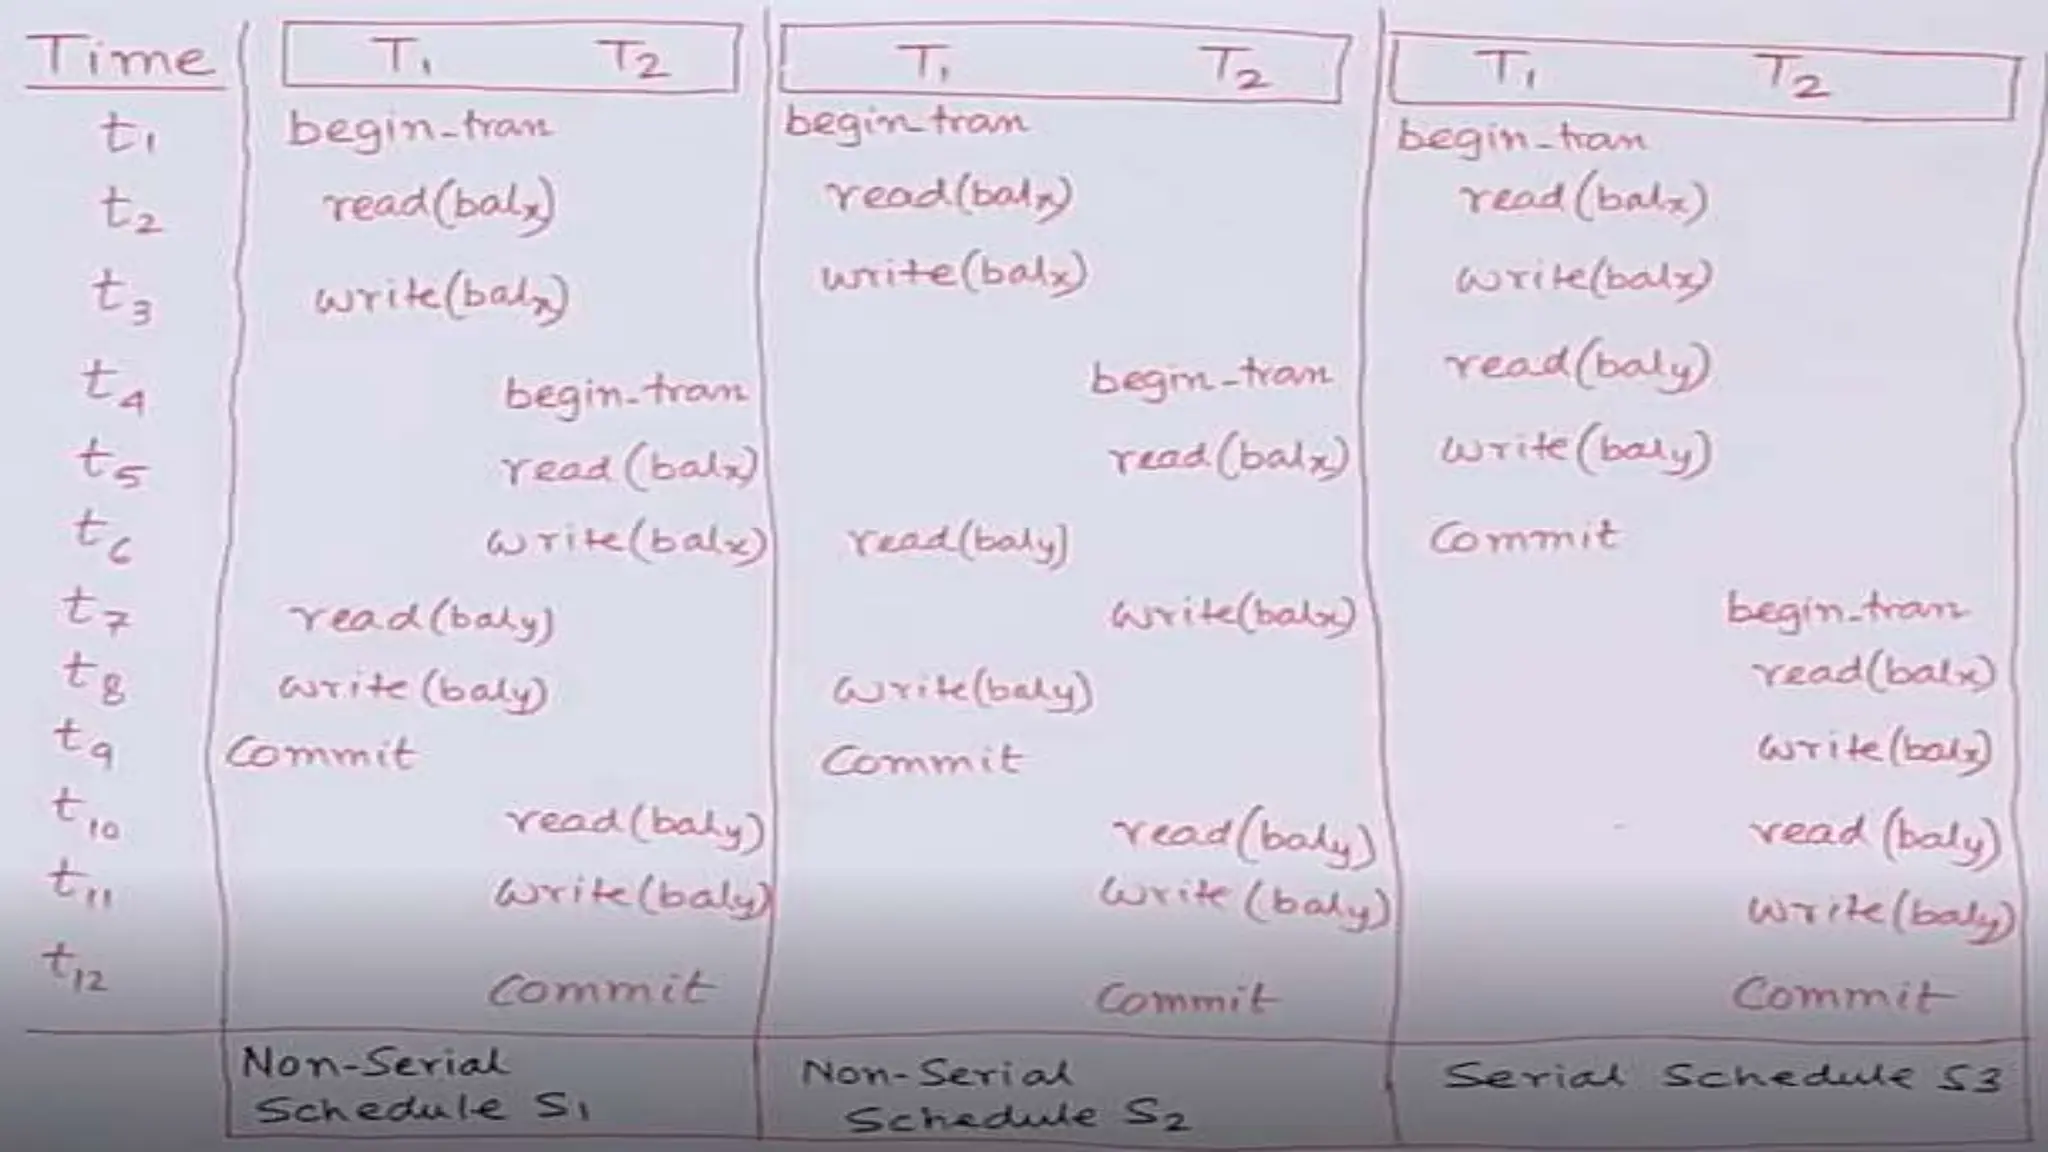 Time T1 T2 T1 T2 T1 T2
t1 begin-tran begin-tran begin-tran
t2 read(balx) read(balx) read(balx)
t3 write(balx) write(balx) write(balx)
t4 begin-tran begin-tran read(baly)
t5 read(balx) read(balx) write(baly)
t6 write(balx) read(baly) Commit
t7 read(baly) write(balx) begin-tran
t8 write(baly) write(baly) read(balx)
t9 Commit Commit write(balx)
t10 read(baly) read(baly) read(baly)
t11 write(baly) write(baly) write(baly)
t12 Commit Commit Commit
Non-Serial Non-Serial Serial Schedule S3
Schedule S1 Schedule S2